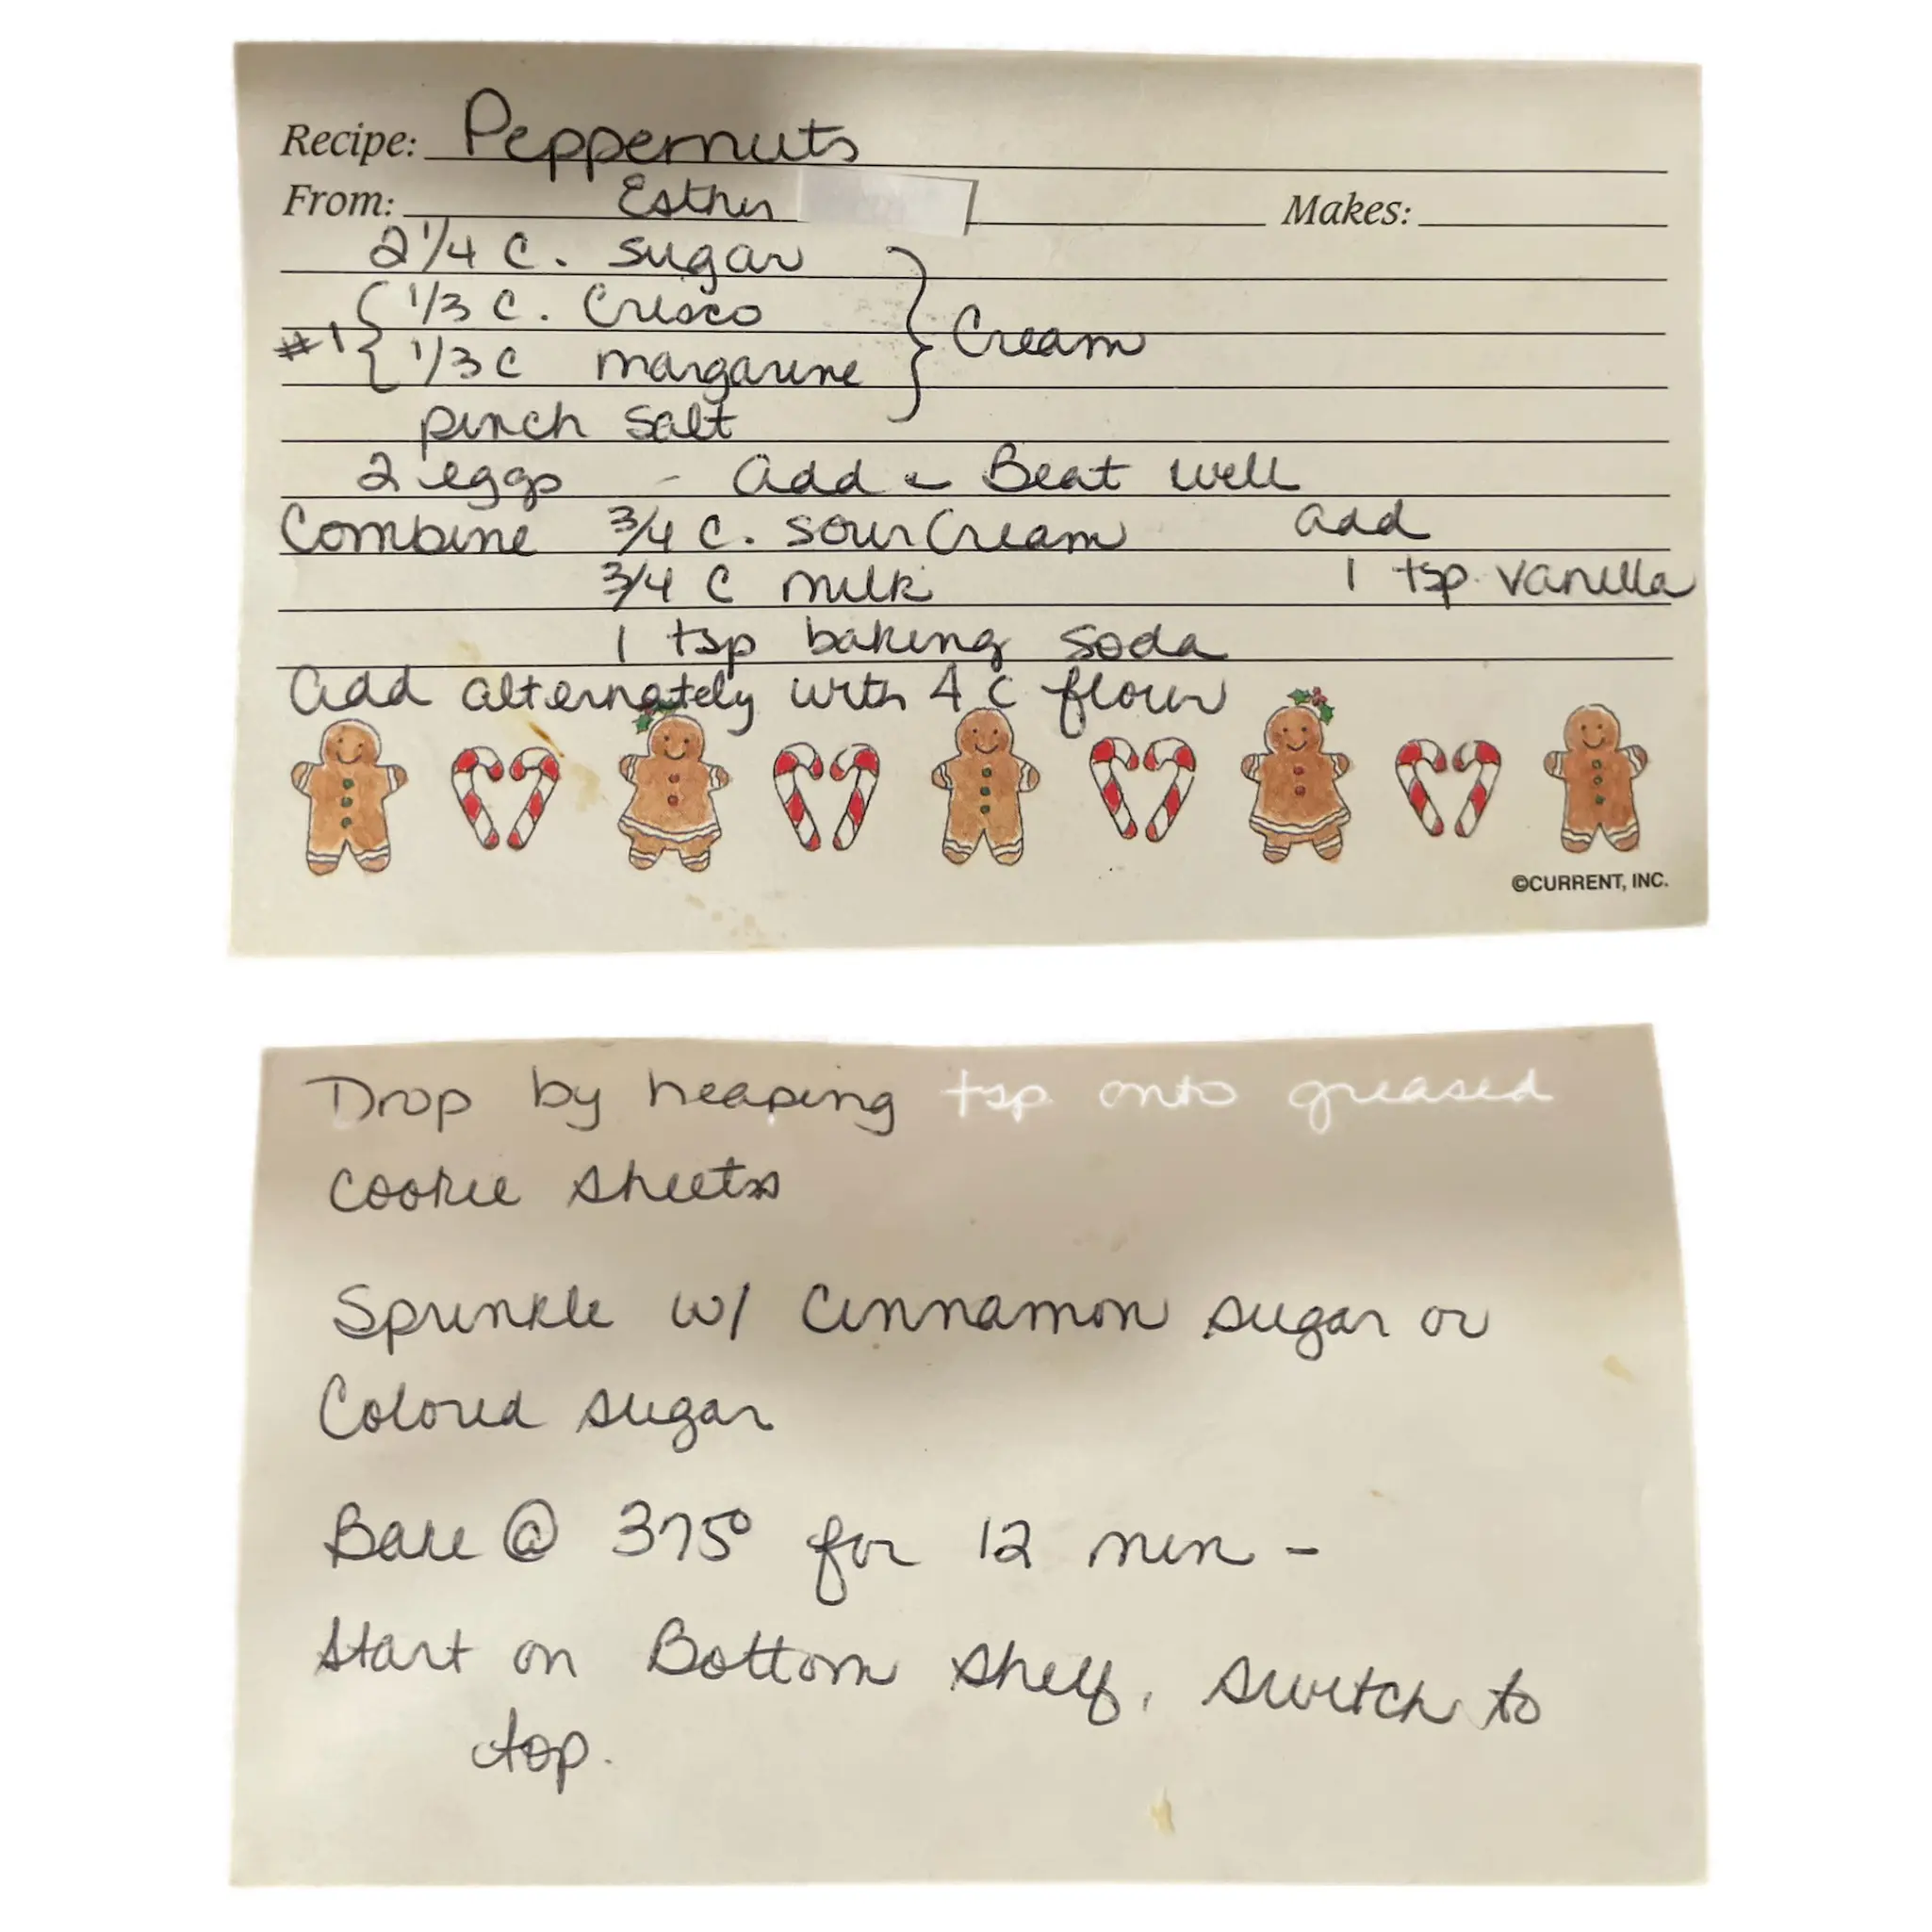 Recipe: Peppernuts
From: Esther Makes:
2 1/4 C. sugar
1/3 C. Crisco
#1 1/3 C margarine Cream
pinch salt
2 eggs - add & Beat well
Combine 3/4 C. sour Cream add
3/4 C milk 1 tsp. vanilla
1 tsp baking soda
add alternately with 4 C flour
©CURRENT, INC.
Drop by heaping tsp onto greased
cookie sheets
Sprinkle w/ Cinnamon sugar or
Colored sugar
Bake @ 375° for 12 min -
Start on Bottom shelf, switch to
top.